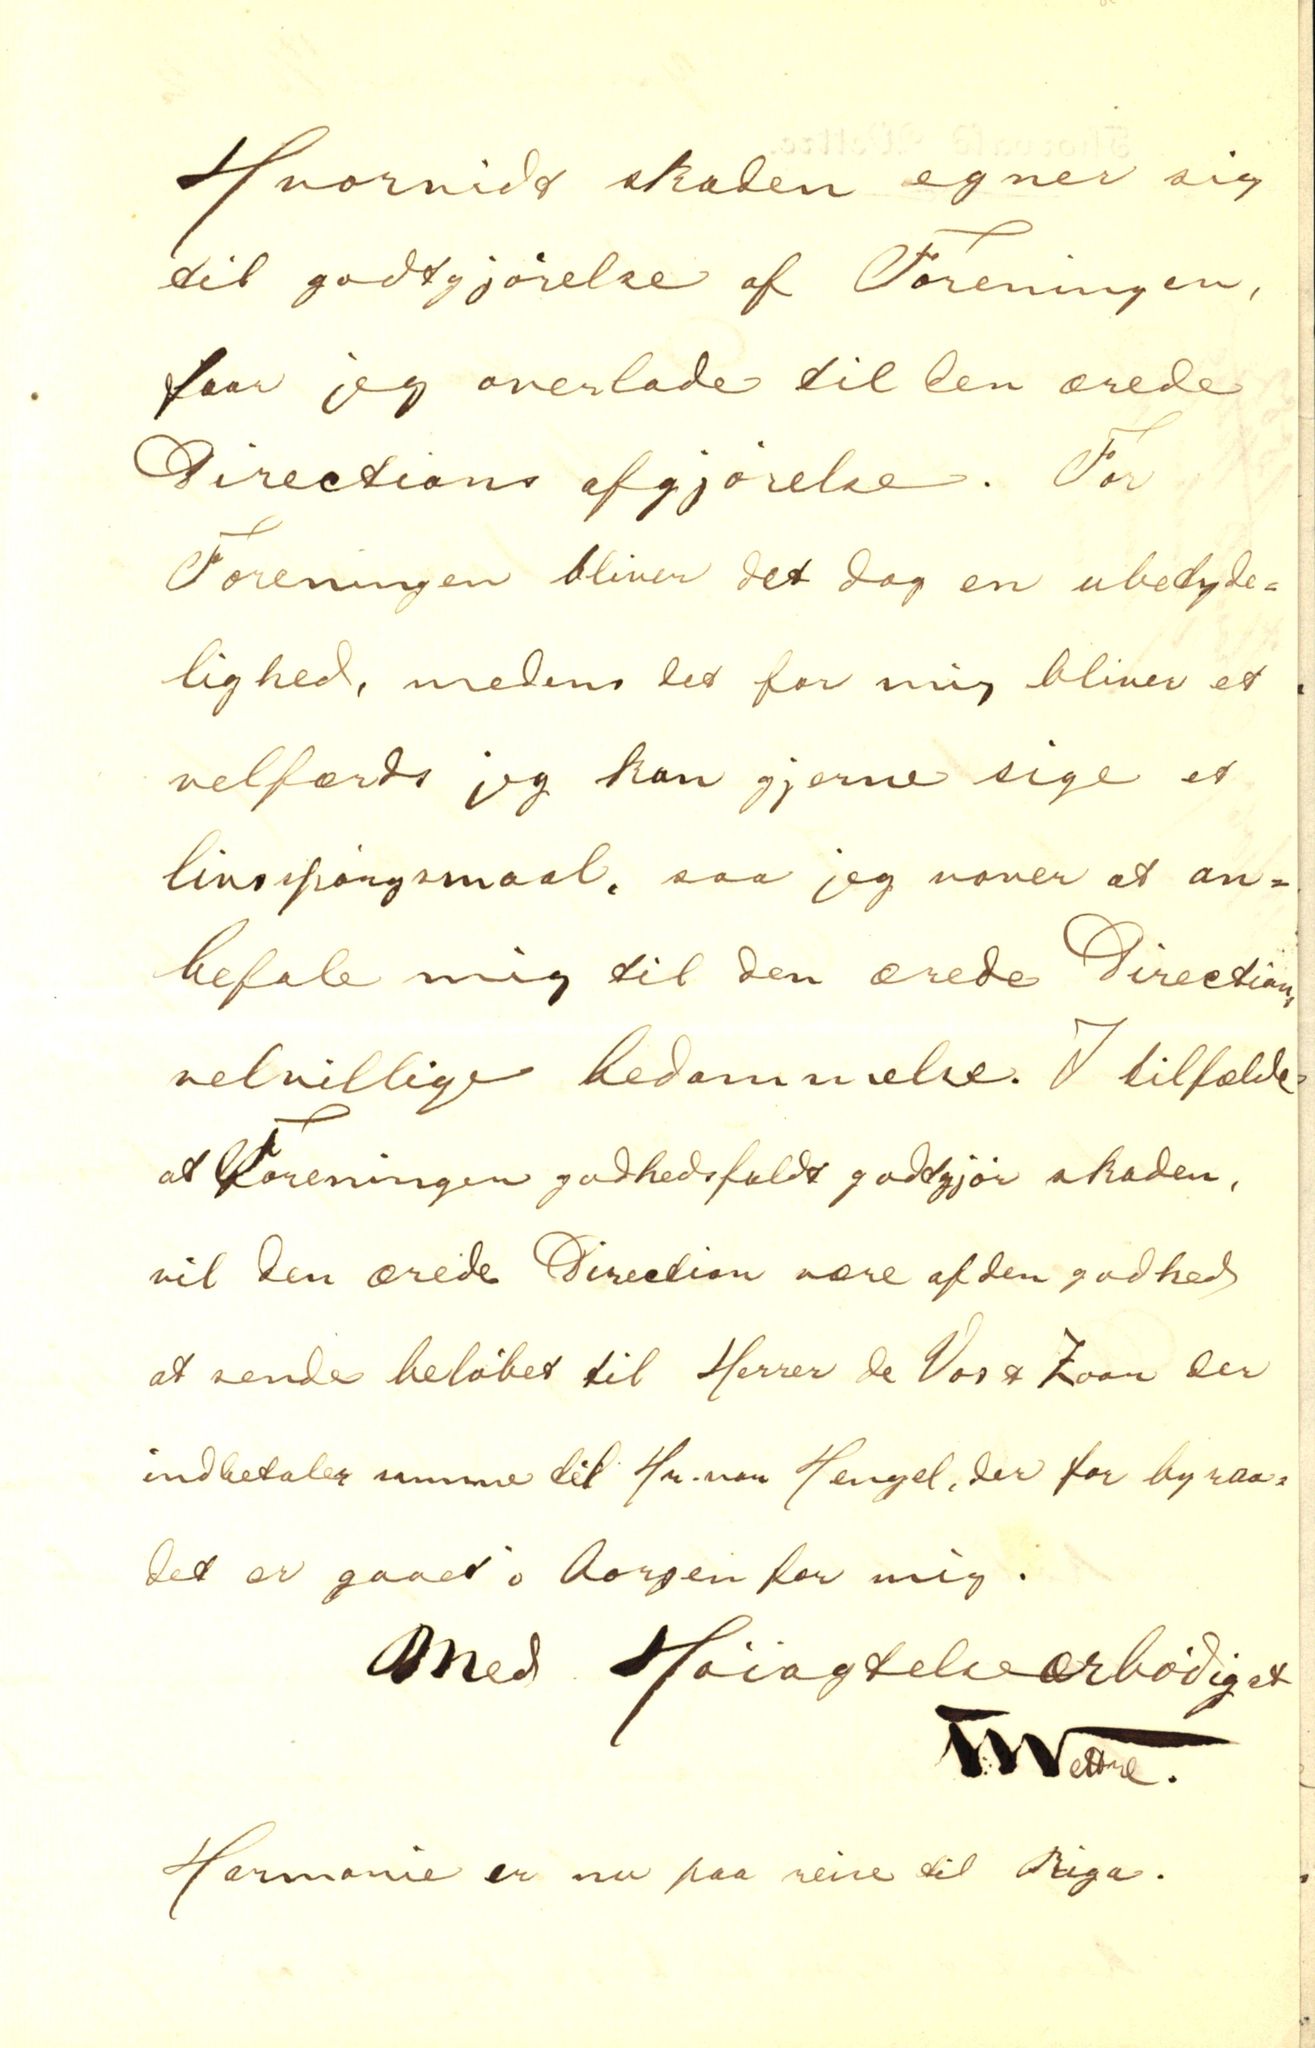 Hvorvidt skaden egner sig
til godtgjörelse af Foreningen,
faar jeg overlade til den ærede
Directions afgjörelse. For
Foreningen bliver det dog en ubetyde=
lighed, medens det for mig bliver et
velfærds jeg kan gjerne sige et
livsspörgsmaal, saa jeg vover at an=
befale mig til den ærede Directions
velvillige bedømmelse. I tilfælde
at Foreningen godhedsfuldt godtgjör skaden,
vil den ærede Direction være af den godhed
at sende belöbet til Herrer de Vos & Zoon der
indbetaler samme til Hr. van Hengel, der for byraa=
det er gaaet i borgen for mig.
Med Höiagtelse ærbödigst
T Wettre.
Harmonie er nu paa reise til Riga.